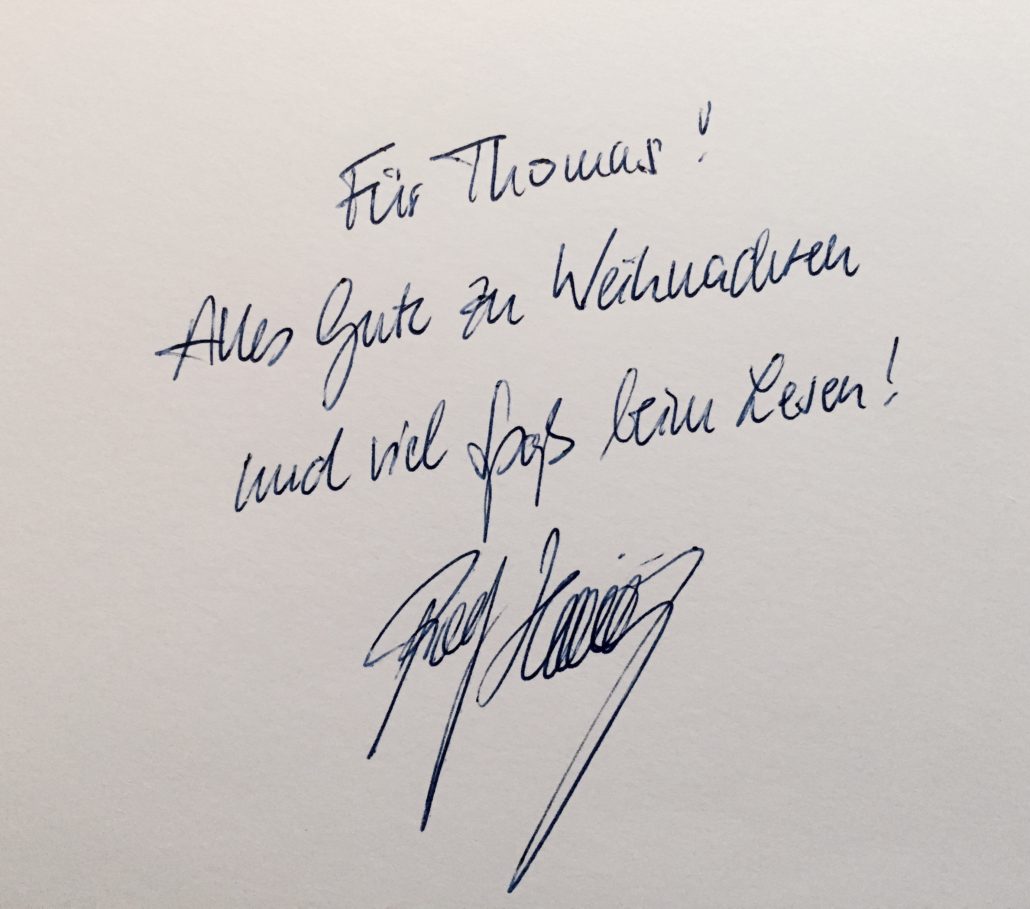 Für Thomas!
Alles Gute zu Weihnachten
und viel Spaß beim Lesen!